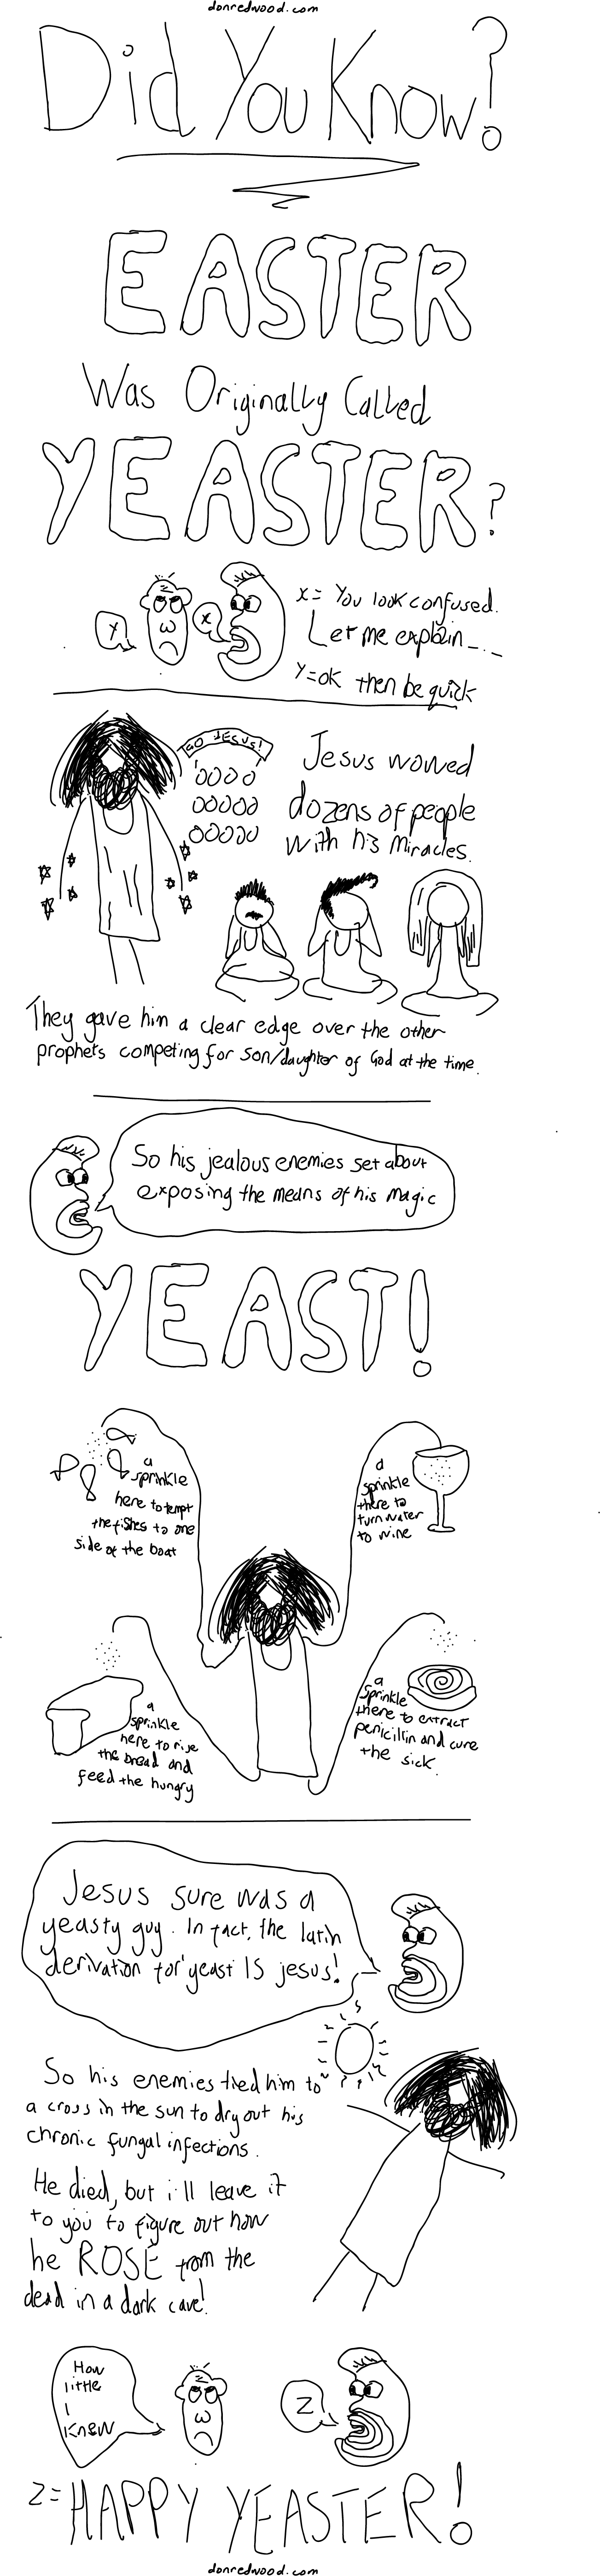 donredwood.com
Did You Know?
EASTER
Was Originally Called
YEASTER?
Y
X
X= You look confused.
Let me explain...
Y=ok then be quick
GO JESUS!
Jesus wowed
dozens of people
with his miracles.
They gave him a clear edge over the other
prophets competing for son/daughter of God at the time.
So his jealous enemies set about
exposing the means of his magic
YEAST!
a
sprinkle
here to tempt
the fishes to one
side of the boat
a
sprinkle
there to
turn water
to wine
a
sprinkle
here to rise
the bread and
feed the hungry
a
sprinkle
there to extract
penicillin and cure
the sick.
Jesus sure was a
yeasty guy. In fact, the latin
derivation for yeast IS jesus!
So his enemies tied him to
a cross in the sun to dry out his
chronic fungal infections.
He died, but i'll leave it
to you to figure out how
he ROSE from the
dead in a dark cave!
How
little
I
Knew
Z
Z= HAPPY YEASTER!
donredwood.com